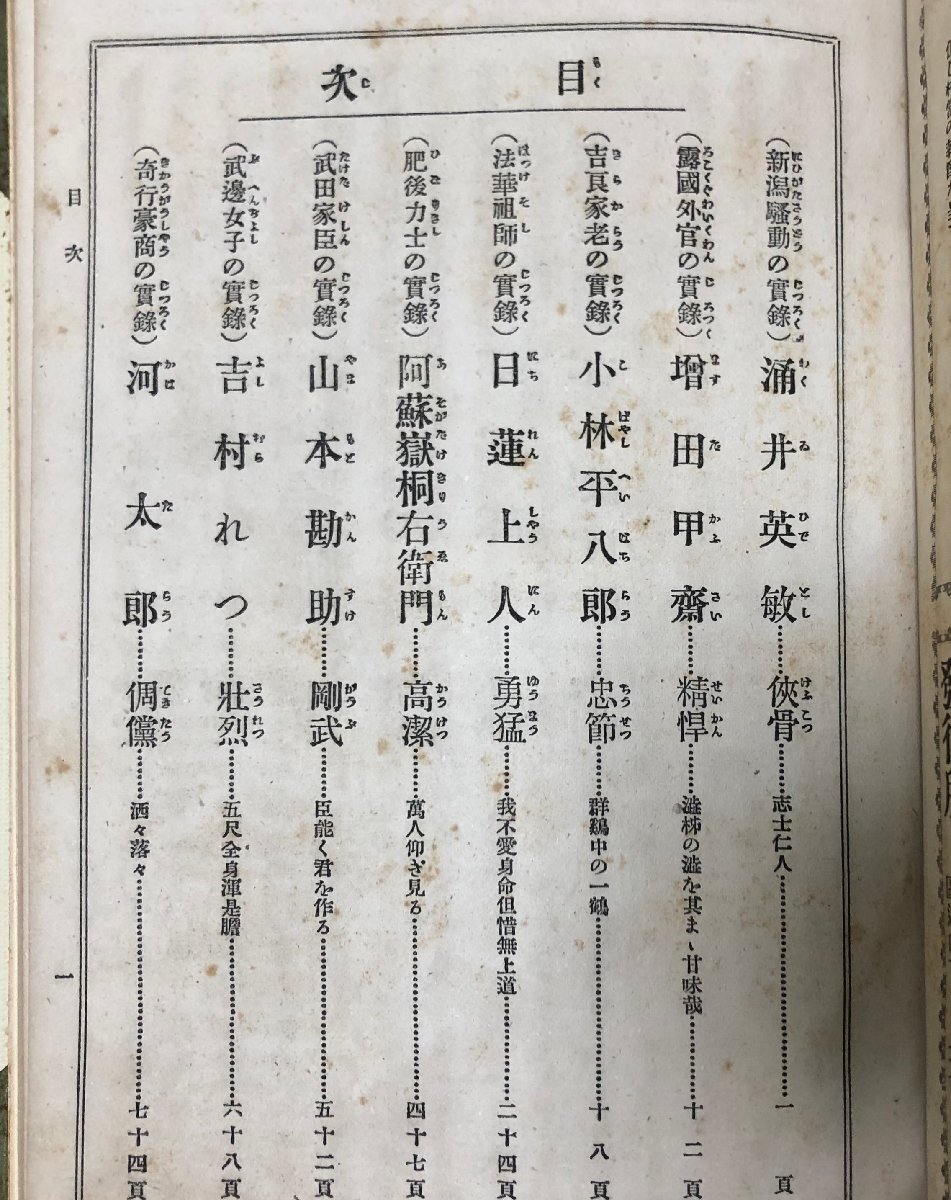 目次
(新潟騷動の實錄)涌井英敏………俠骨………志士仁人………一頁
(露國外官の實錄)增田甲齋………精悍………澁柿の澁を其まゝ甘味哉………十二頁
(吉良家老の實錄)小林平八郎………忠節………群鷄中の一鶴………十八頁
(法華祖師の實錄)日蓮上人………勇猛………我不愛身命但惜無上道………二十四頁
(肥後力士の實錄)阿蘇嶽桐右衞門………高潔………萬人仰ぎ見る………四十七頁
(武田家臣の實錄)山本勘助………剛武………臣能く君を作る………五十二頁
(武邊女子の實錄)吉村れつ………壯烈………五尺全身渾是膽………六十八頁
(奇行豪商の實錄)河太郎………倜儻………洒々落々………七十四頁
目次
一